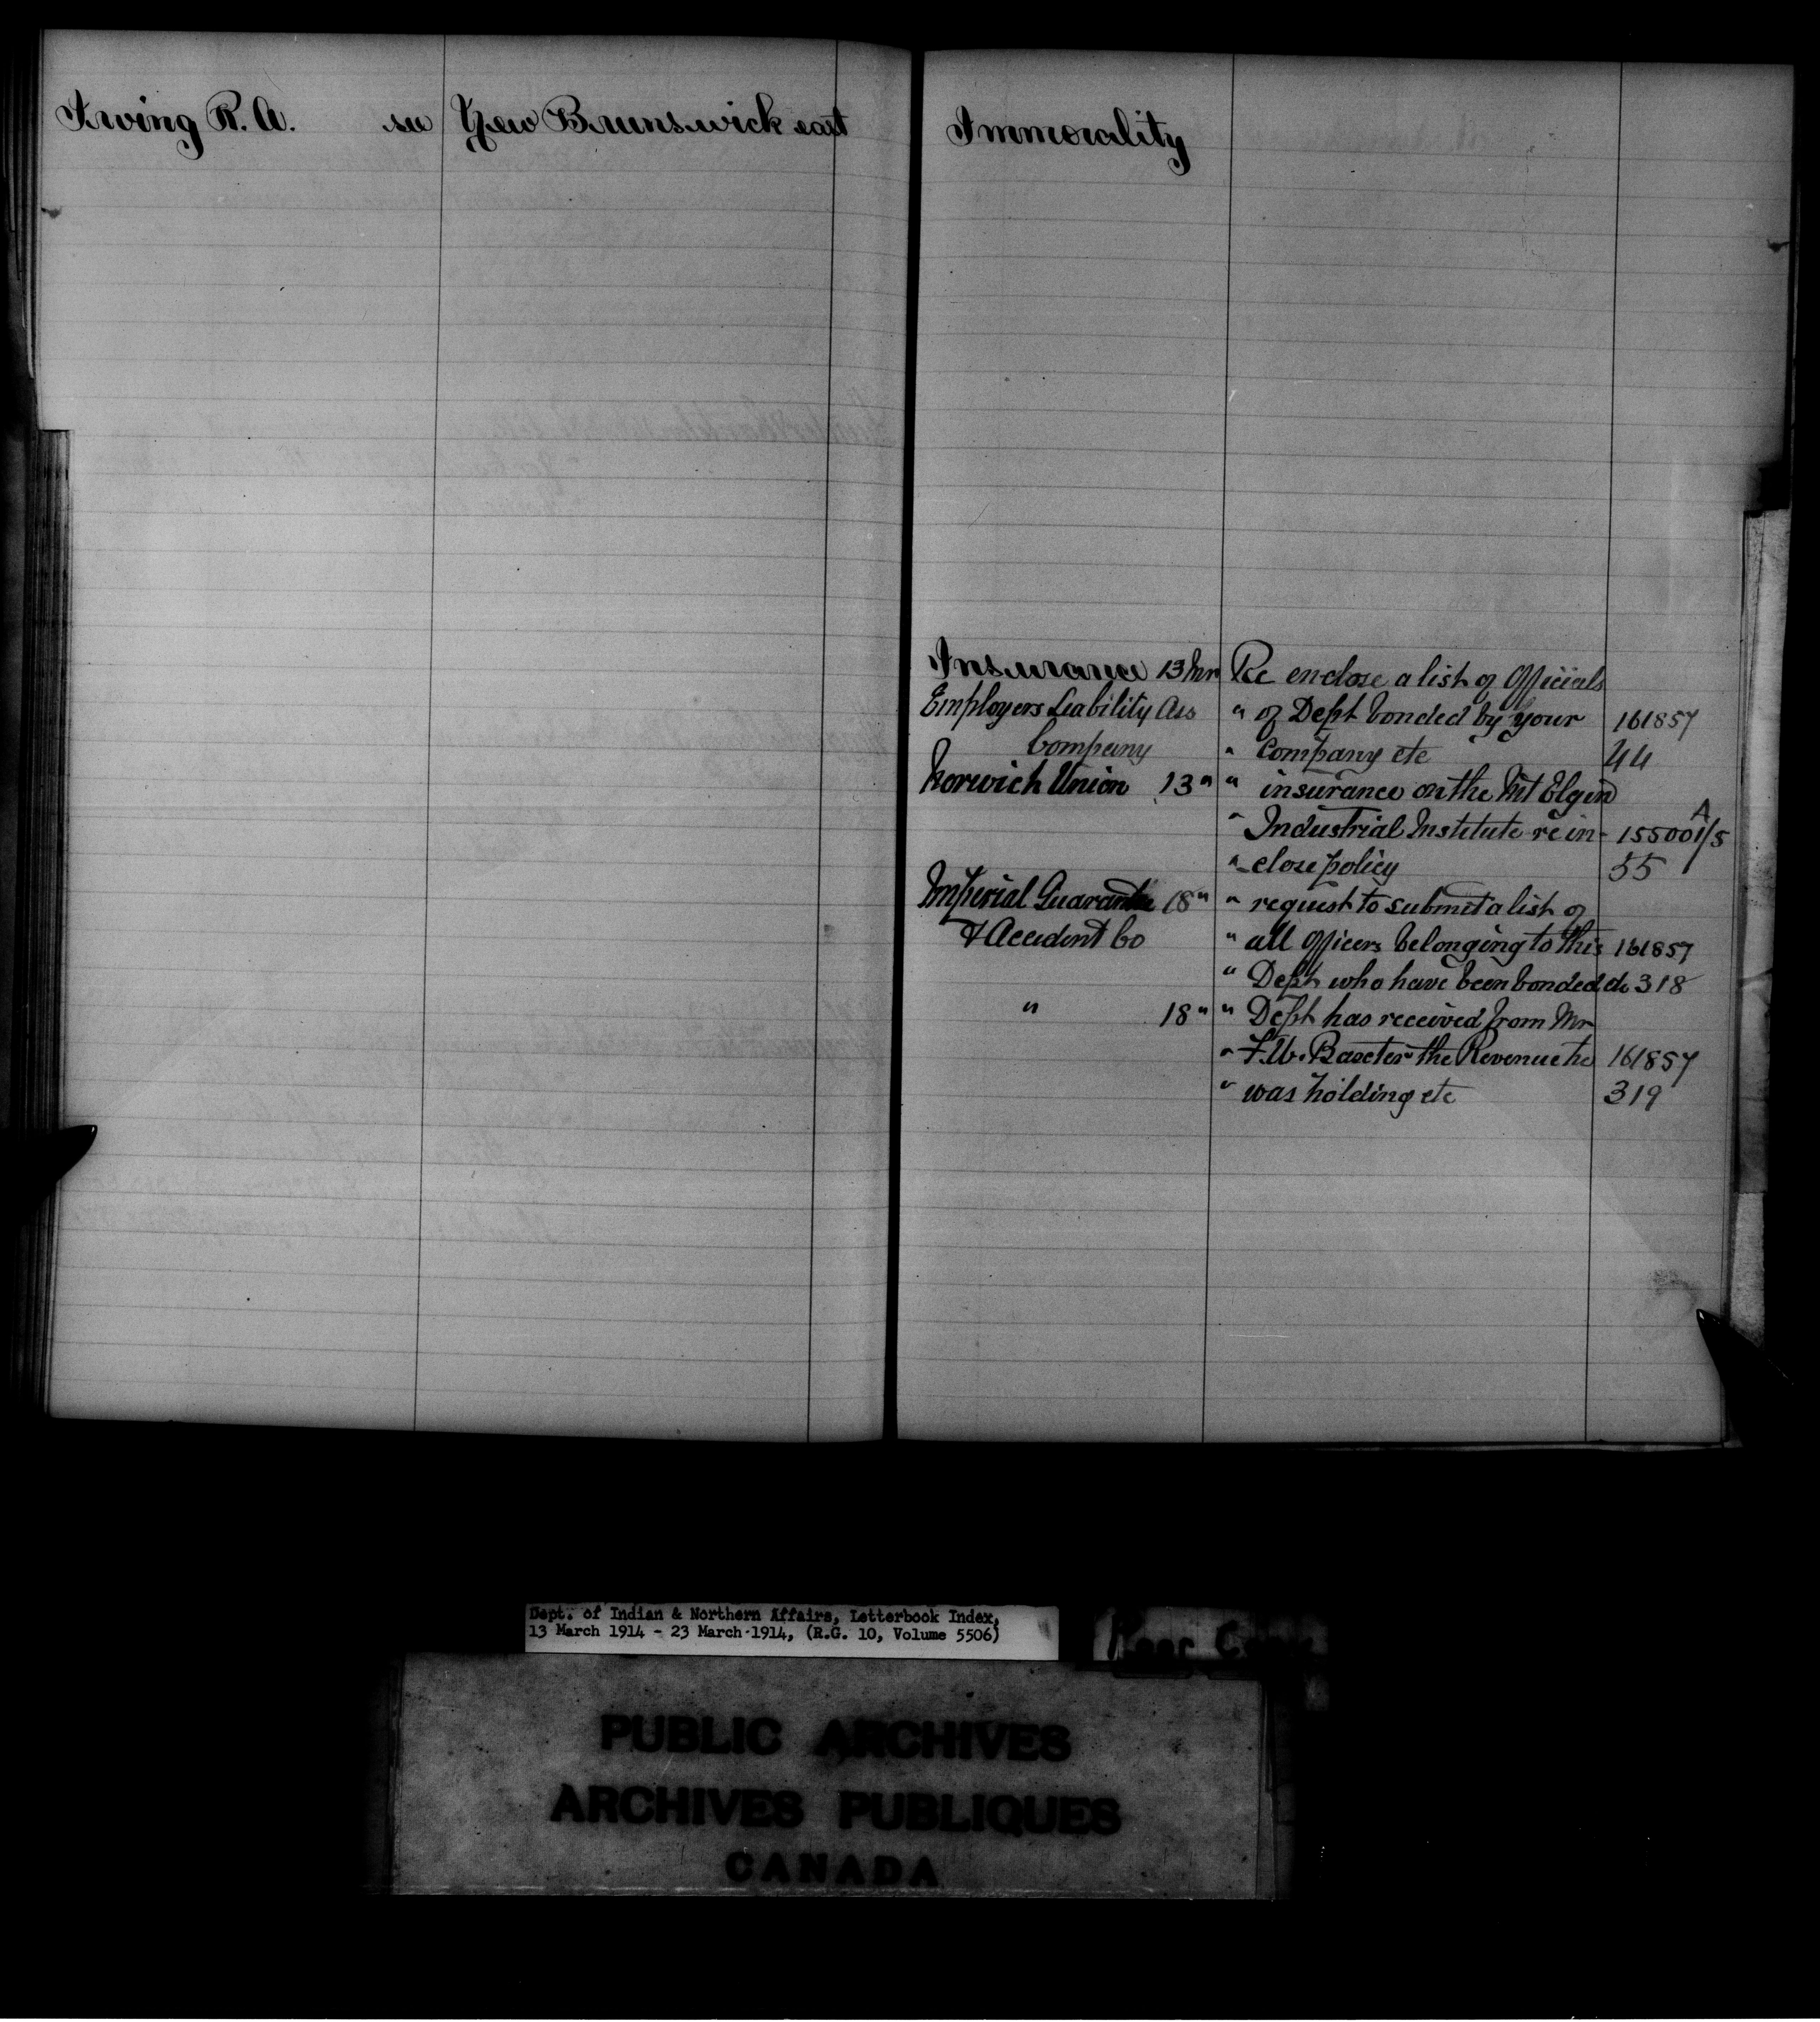 Irving R. A. see New Brunswick east
Immorality
Insurance 13 Mr Re enclose a list of Officials
Employers Liability Ass " of Dept bonded by your 161857
Company " Company etc 44
Norwich Union 13 " " insurance on the Mt Elgin
" Industrial Institute re in- 155001/5 A
" close policy 55
Imperial Guarantee 18 " " request to submit a list of
& Accident Co " all Officers belonging to this 161857
" Dept who have been bonded do 318
" 18 " " Dept has received from Mr
" Baxter the Revenue he 161857
" was holding etc 319
Dept. of Indian & Northern Affairs, Letterbook Index,
13 March 1914 - 23 March 1914, (R.G. 10, Volume 5506)
PUBLIC ARCHIVES
ARCHIVES PUBLIQUES
CANADA